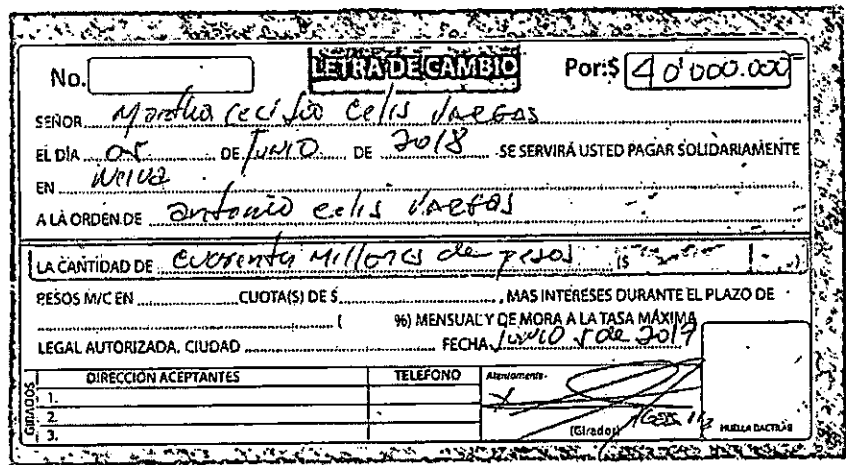 No. LETRA DE CAMBIO Por:$ 40'000.000
SEÑOR Martha Cecilia Celis Vargas
EL DÍA 05 DE JUNIO DE 2018 SE SERVIRÁ USTED PAGAR SOLIDARIAMENTE
EN Neiva
A LA ORDEN DE Antonio Celis Vargas
LA CANTIDAD DE Cuarenta Millones de pesos ($ )
PESOS M/C EN CUOTA(S) DE $ , MAS INTERESES DURANTE EL PLAZO DE
( %) MENSUAL Y DE MORA A LA TASA MÁXIMA
LEGAL AUTORIZADA. CIUDAD FECHA JUNIO 5 de 2017
GIRADOS DIRECCIÓN ACEPTANTES TELEFONO Atentamente
1. X
2.
3. (Girador) HUELLA DACTILAR